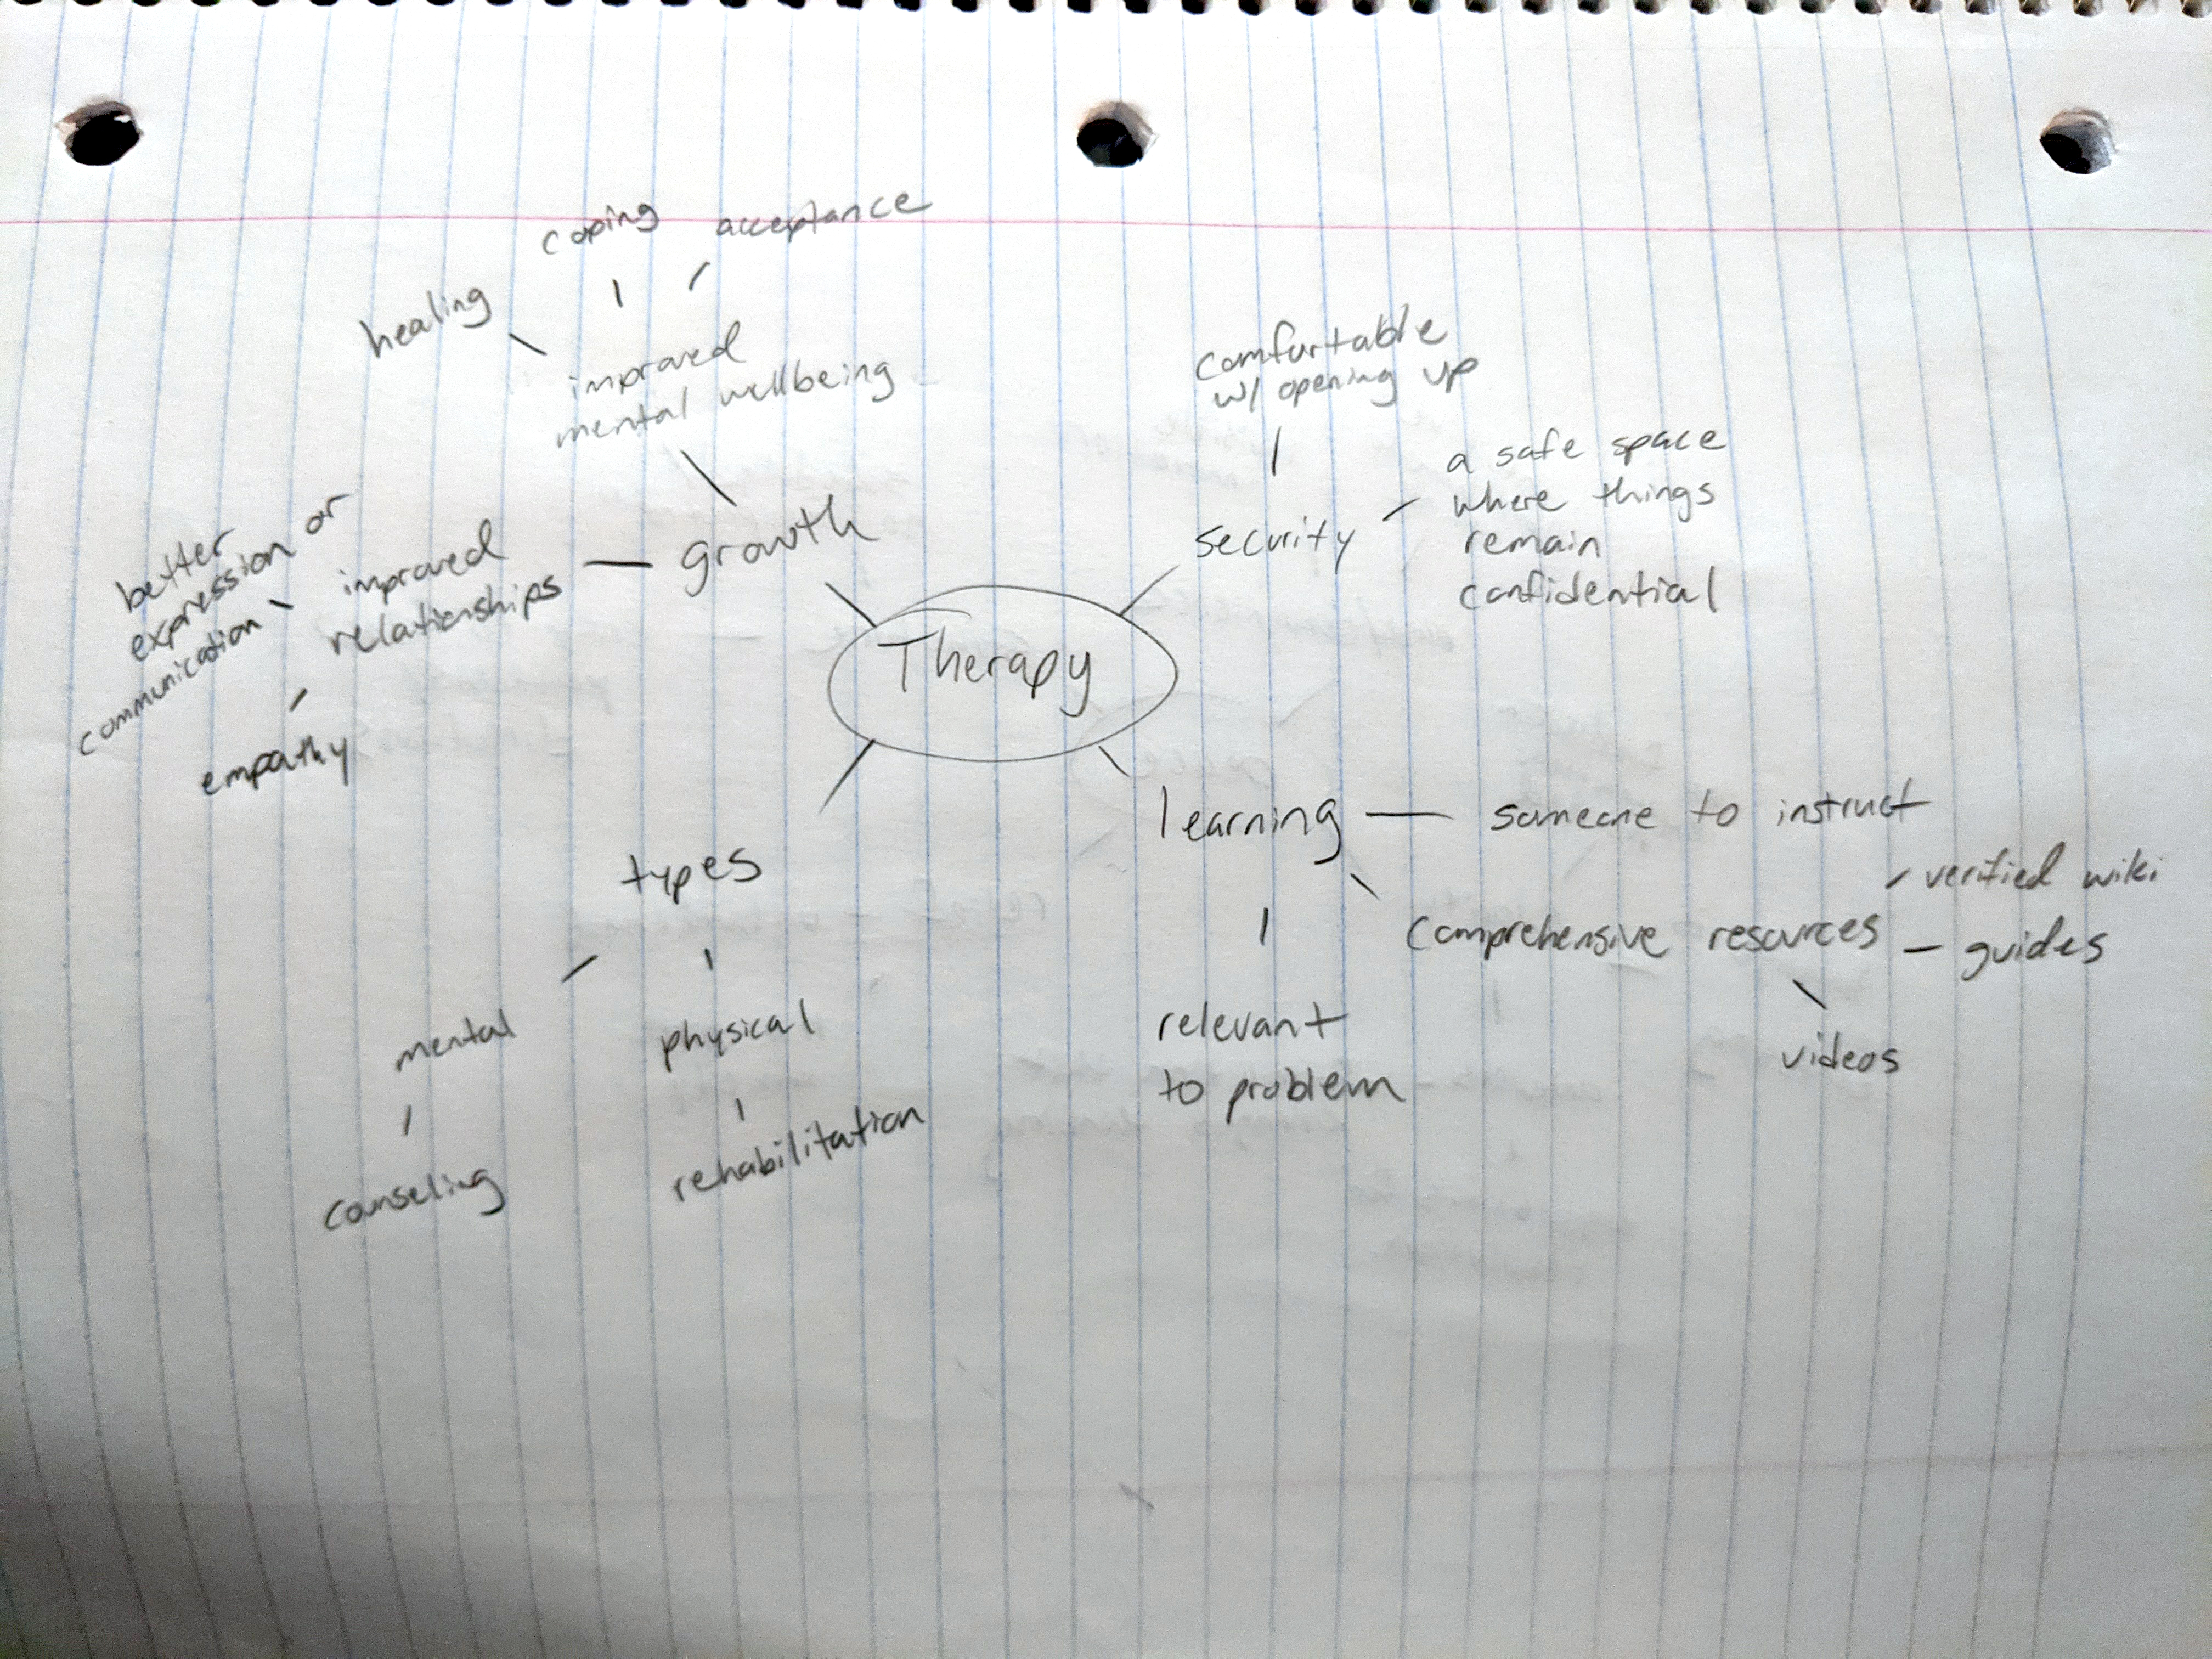 coping
acceptance
healing
improved
mental wellbeing
growth
better
expression or
communication
improved
relationships
empathy
comfortable
w/ opening up
security
a safe space
where things
remain
confidential
Therapy
learning
someone to instruct
comprehensive resources
verified wiki
guides
videos
relevant
to problem
types
mental
counseling
physical
rehabilitation